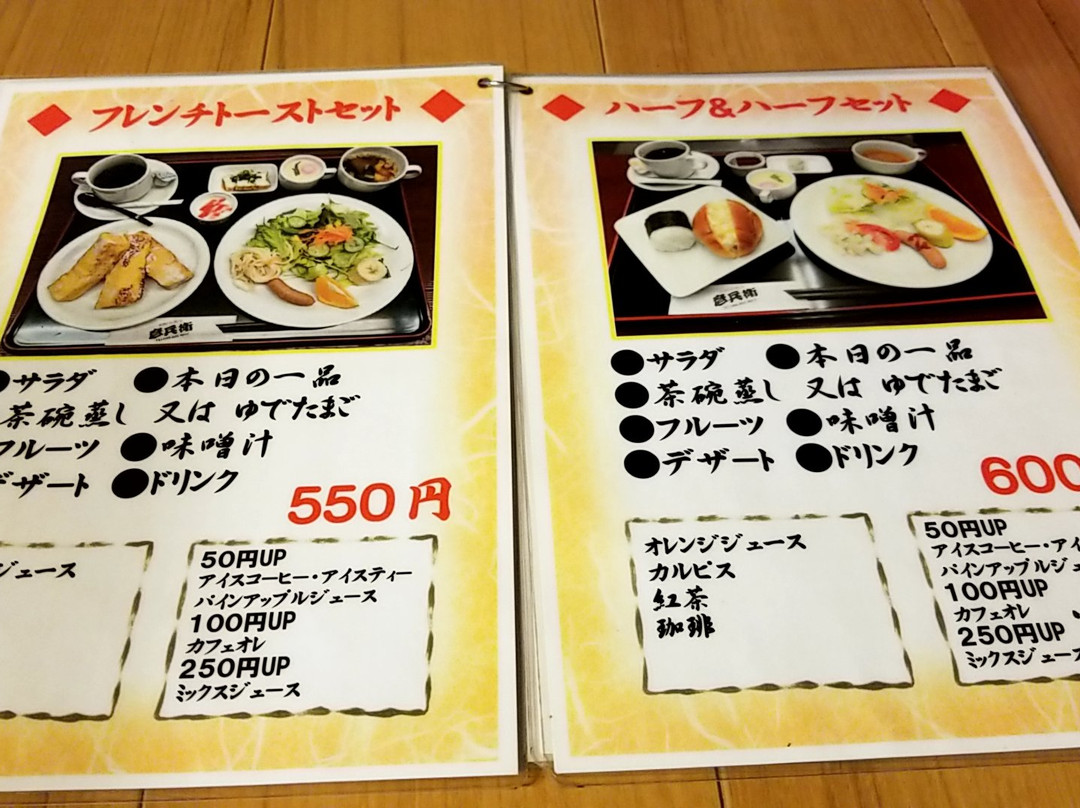 フレンチトーストセット
彦兵衛
サラダ ●本日の一品
茶碗蒸し 又は ゆでたまご
フルーツ ●味噌汁
デザート ●ドリンク
550円
ジュース
50円UP
アイスコーヒー・アイスティー
パインアップルジュース
100円UP
カフェオレ
250円UP
ミックスジュース
ハーフ&ハーフセット
彦兵衛
●サラダ ●本日の一品
●茶碗蒸し 又は ゆでたまご
●フルーツ ●味噌汁
●デザート ●ドリンク
600
オレンジジュース
カルピス
紅茶
珈琲
50円UP
アイスコーヒー・アイ
パインアップルジュ
100円UP
カフェオレ
250円UP
ミックスジュース